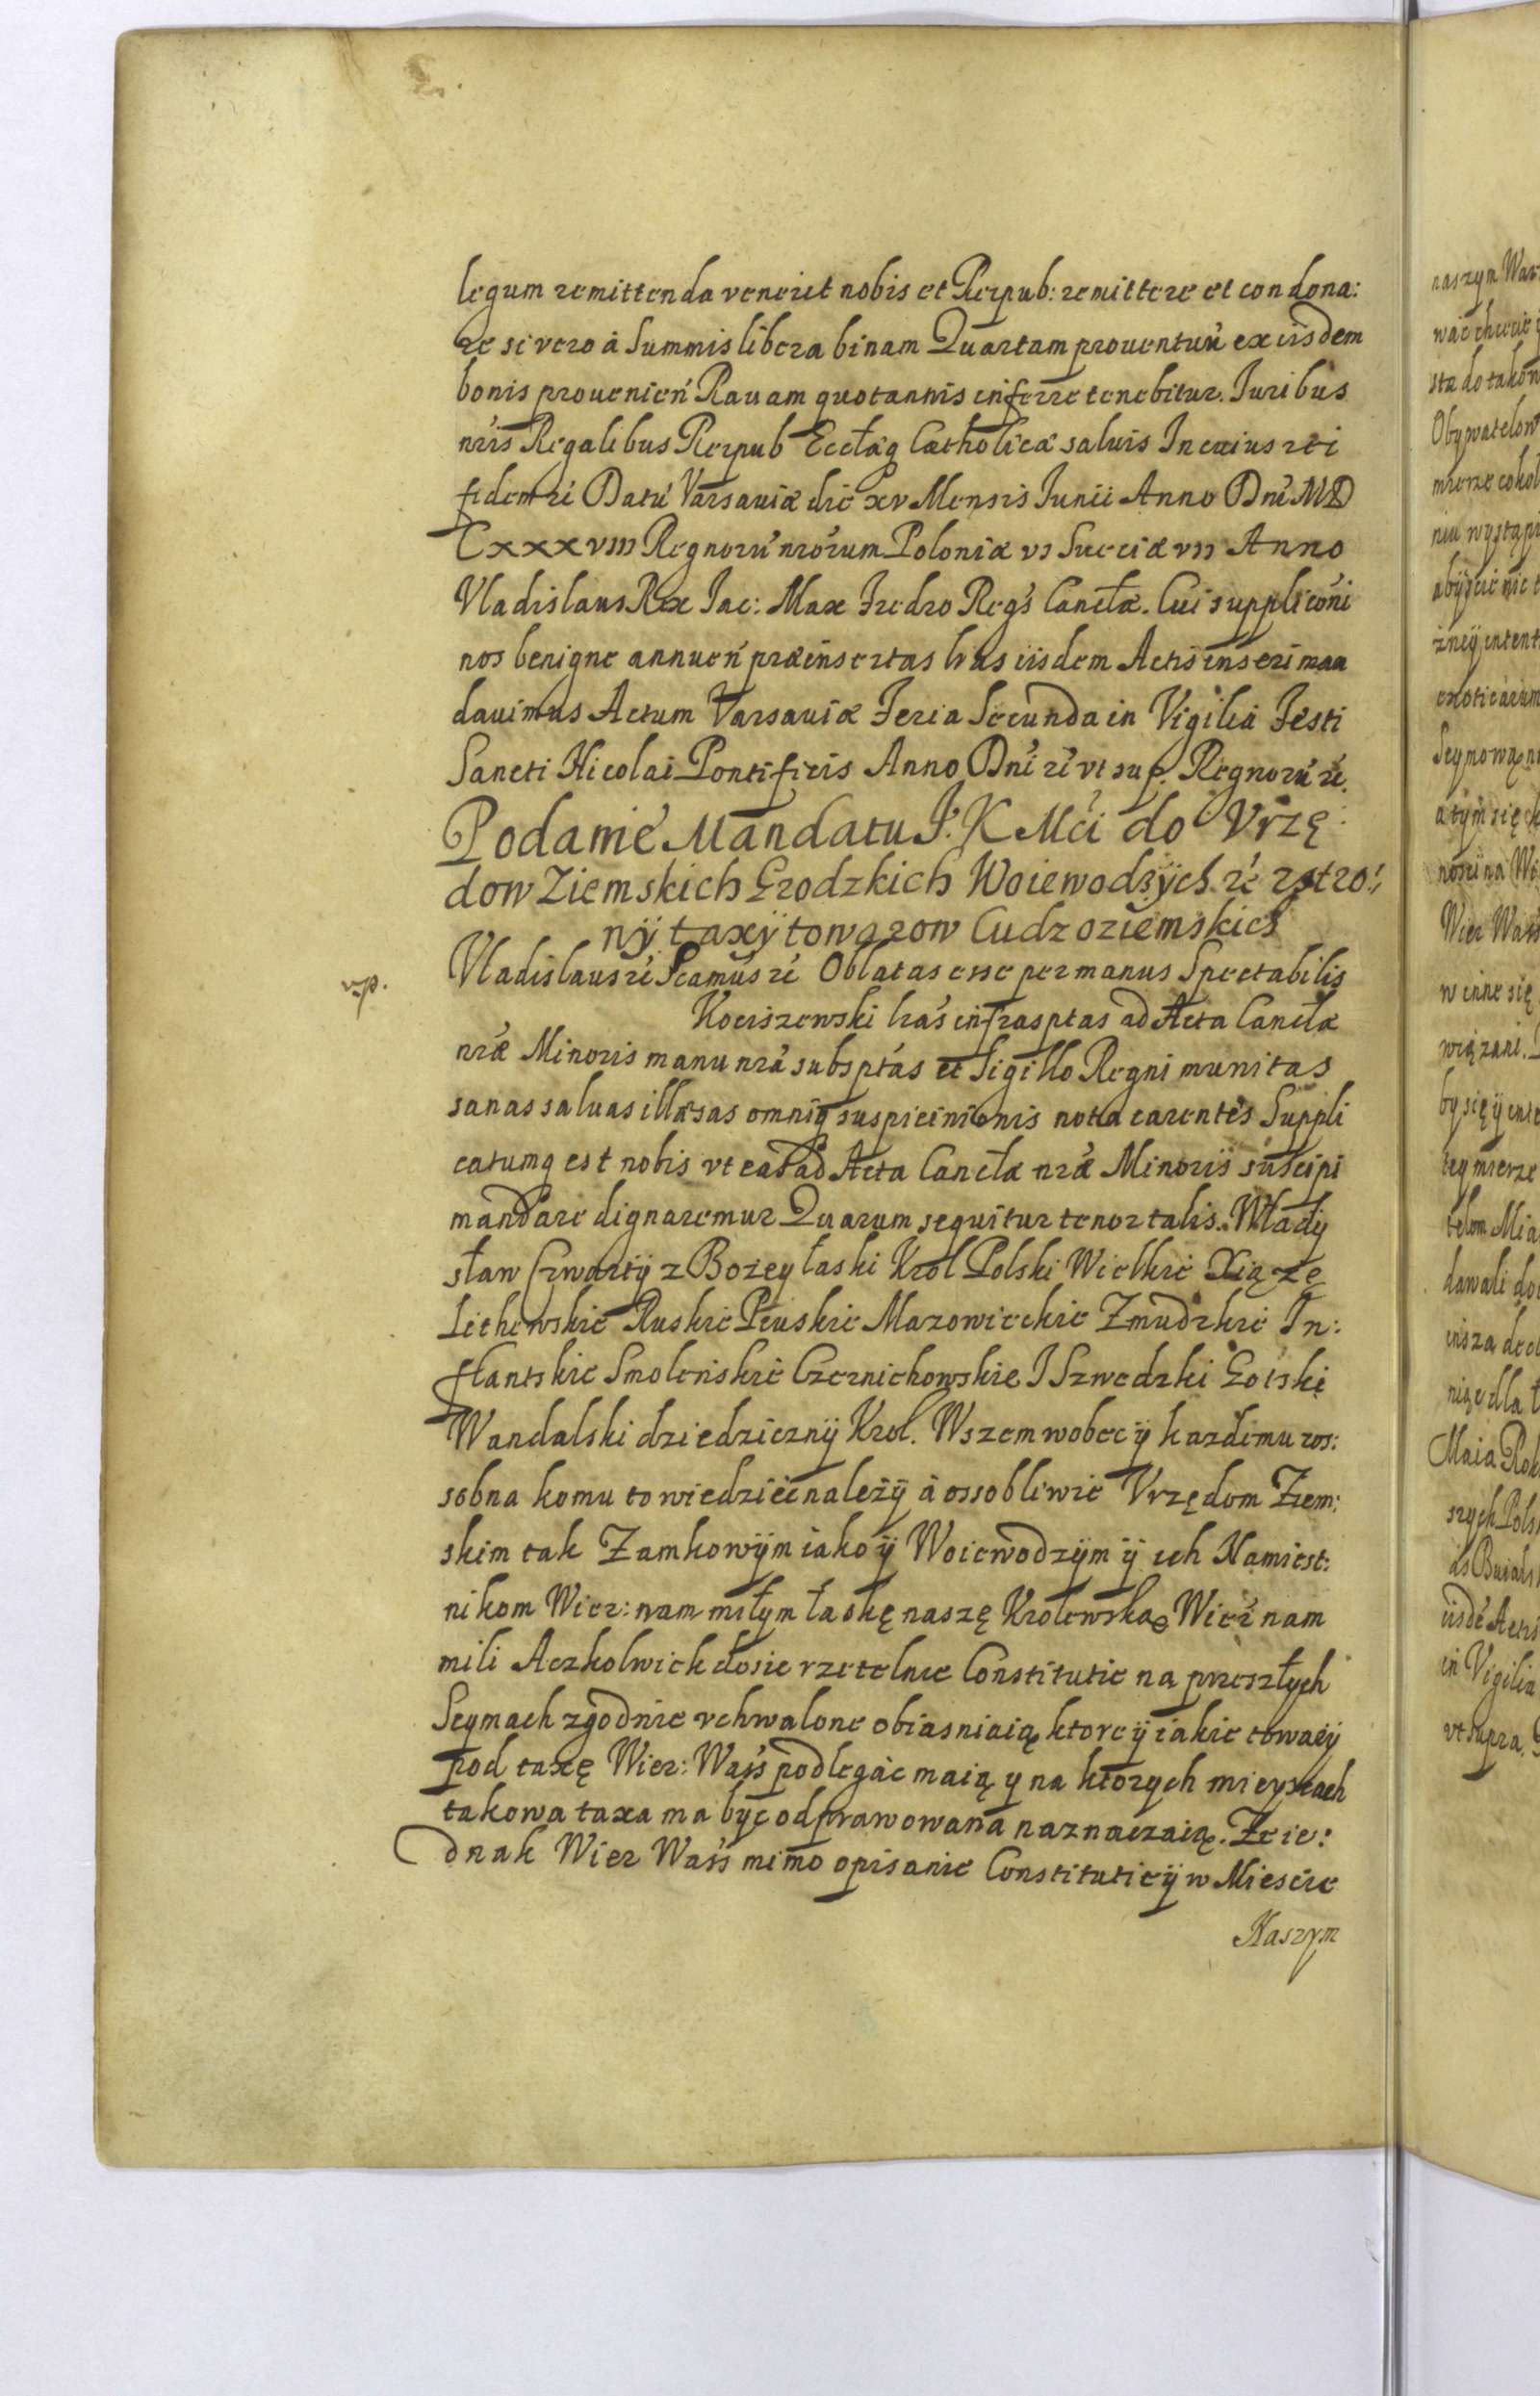 legum remittenda venerit nobis et Reipub: remittere et condona:
re si vero à Summis libera binam Quartam prouentuũ ex iisdem
bonis prouenień Rauam quotannis inferre tenebitur. Iuribus
nr̃is Regalibus Reipub Eccłæq Catholicæ saluis In cuius rei
fidem rć Datũ Varsauiæ die xv Mensis Iunii Anno Dnĩ MD
Cxxxviii Regnorũ nr̃orum Poloniæ vi Sueciæ vii Anno
Vladislaus Rex Jac: Max Fredro Reg's Cancłæ. Cui supplicõni
nos benigne annueń præinsertas lr̃as iisdem Actis inseri man
dauimus Actum Varsauiæ Feria Secunda in Vigilia Festi
Sancti Nicolai Pontificis Anno Dnĩ rć vt sup. Regnorũ rć.
Podanie Mandatu J. K Mći do Vrzę
dow Ziemskich Grodzkich Woiewodzÿch rć rstro:
nÿ taxÿ towarow Cudzoziemskich
Vladislaus rć Seamus rć Oblatas esse per manus Spectabilis
vp.
Kociszewski lr̃as infrasptas ad Acta Cancłæ
nr̃æ Minoris manu nr̃a subsptas et Sigillo Regni munitas
sanas saluas illæsas omniq suspicinionis nota carentes Suppli
catumq est nobis vt eas ad Acta Cancłæ nr̃æ Minoris suscipi
mandare dignaremur Quarum sequitur tenor talis. Władÿ
sław Czwartÿ z Bozey łaski Krol Polski Wielkie Xiązę
Lithewskie Ruskie Pruskie Mazowieckie Zmudzkie In:
flantskie Smolenskie Czernichowskie I Szwedzki Gotski
Wandalski dziedzicznÿ Krol. Wszem wobec ÿ kazdemu zos:
sobna komu to wiedzieć należÿ à ossobliwie Vrzędom Ziem:
skim tak Zamkowÿm iako ÿ Woiewodzÿm ÿ ich Namiest:
nikom Wier: nam miłym łaskę naszę Krolewską Wier nam
mili Aczkolwiek dosic rzetelnie Constitutie na przeszłych
Seymach zgodnie vchwalone obiasniaią ktore ÿ iakie towary
pod taxę Wier: Wass podlegać maią y na ktorych mieyscach
takowa taxa ma byc odprawowana naznaczaią. Ze ie:
dnak Wier Wass mimo opisanie Constituticÿ w Miescie
Naszym